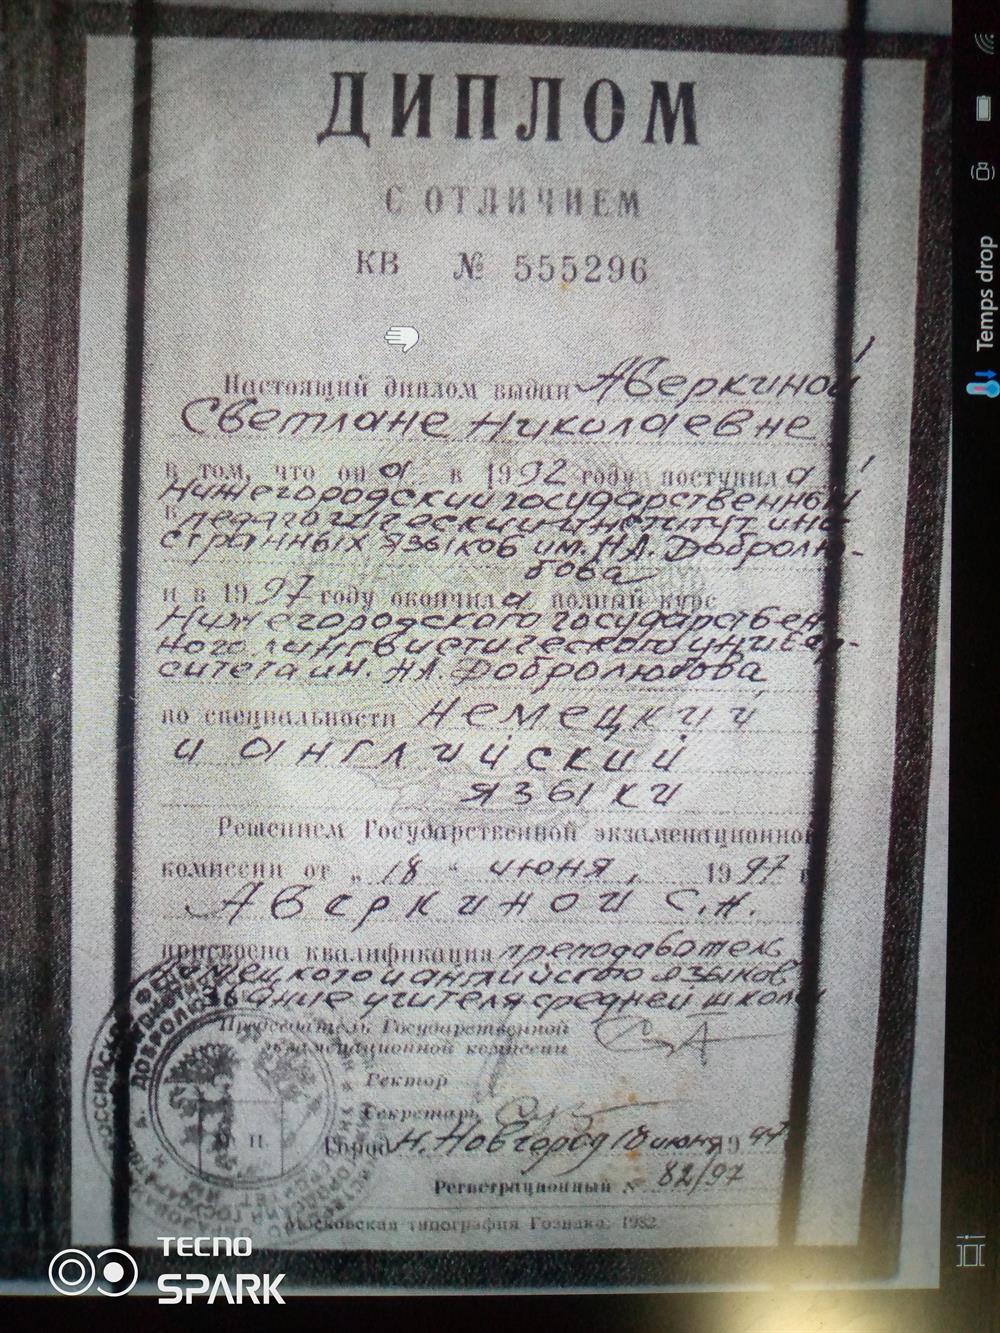 ДИПЛОМ
С ОТЛИЧИЕМ
КВ № 555296
Настоящий диплом выдан Аверкиной
Светлане Николаевне
в том, что он а в 1992 году поступил а
Нижегородский государственный
в педагогический институт ино-
странных языков им. Н.А. Добролю-
бова
и в 1997 году окончил а полный курс
Нижегородского государствен
ного лингвистического универ-
ситета им. Н.А. Добролюбова
по специальности Немецкий
и английский
языки
Решением Государственной экзаменационной
комиссии от „18“ июня, 1997 г
Аверкиной С.Н.
присвоена квалификация преподаватель
немецкого и английского языков
звание учителя средней школы
Председатель Государственной
экзаменационной комиссии
Ректор
Секретарь
Город Н. Новгород 18 июня 1997
Регистрационный № 82/97
Московская типография Гознака. 1982.
М. П.
Temps drop
TECNO
SPARK